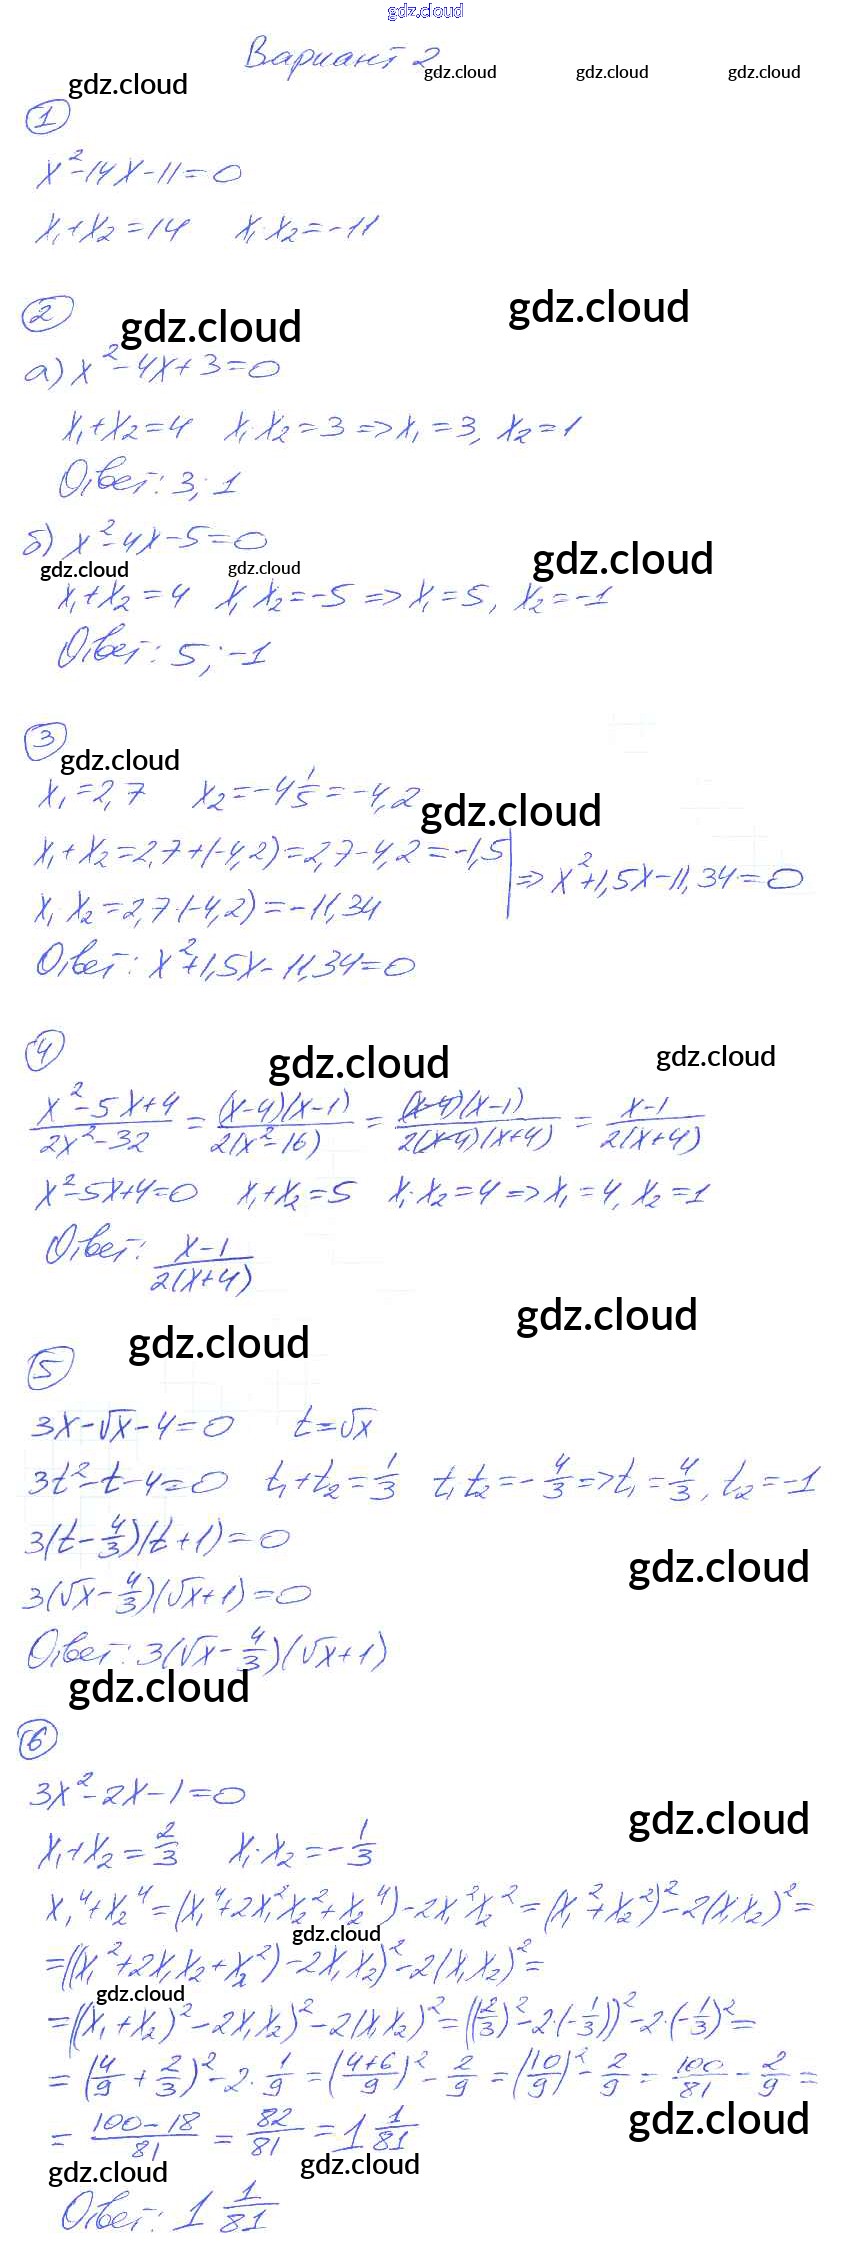 gdz.cloud
Вариант 2
gdz.cloud gdz.cloud gdz.cloud gdz.cloud
1
x²-14x-11=0
x₁+x₂=14 x₁·x₂=-11
2
gdz.cloud gdz.cloud
а) x²-4x+3=0
x₁+x₂=4 x₁·x₂=3=>x₁=3, x₂=1
Ответ: 3; 1
б) x²-4x-5=0
gdz.cloud gdz.cloud gdz.cloud
x₁+x₂=4 x₁x₂=-5=>x₁=5, x₂=-1
Ответ: 5; -1
3
gdz.cloud
x₁=2,7 x₂=-4 1/5=-4,2
gdz.cloud
x₁+x₂=2,7+(-4,2)=2,7-4,2=-1,5
=>x²+1,5x-11,34=0
x₁·x₂=2,7·(-4,2)=-11,34
Ответ: x²+1,5x-11,34=0
4
gdz.cloud gdz.cloud
(x²-5x+4)/(2x²-32) = (x-4)(x-1)/(2(x²-16)) = (x-4)(x-1)/(2(x-4)(x+4)) = (x-1)/(2(x+4))
x²-5x+4=0 x₁+x₂=5 x₁·x₂=4=>x₁=4, x₂=1
Ответ: (x-1)/(2(x+4))
gdz.cloud gdz.cloud
5
3x-√x-4=0 t=√x
3t²-t-4=0 t₁+t₂=1/3 t₁t₂=-4/3=>t₁=4/3, t₂=-1
3(t-4/3)(t+1)=0
gdz.cloud
3(√x-4/3)(√x+1)=0
Ответ: 3(√x-4/3)(√x+1)
gdz.cloud
6
3x²-2x-1=0
gdz.cloud
x₁+x₂=2/3 x₁·x₂=-1/3
x₁⁴+x₂⁴=(x₁⁴+2x₁²x₂²+x₂⁴)-2x₁²x₂²=(x₁²+x₂²)²-2(x₁x₂)²=
gdz.cloud
=((x₁²+2x₁x₂+x₂²)-2x₁x₂)²-2(x₁x₂)²=
gdz.cloud
=((x₁+x₂)²-2x₁x₂)²-2(x₁x₂)²=((2/3)²-2·(-1/3))²-2·(-1/3)²=
=(4/9+2/3)²-2·1/9=((4+6)/9)²-2/9=(10/9)²-2/9=100/81-2/9=
=(100-18)/81=82/81=1 1/81
gdz.cloud
gdz.cloud gdz.cloud
Ответ: 1 1/81